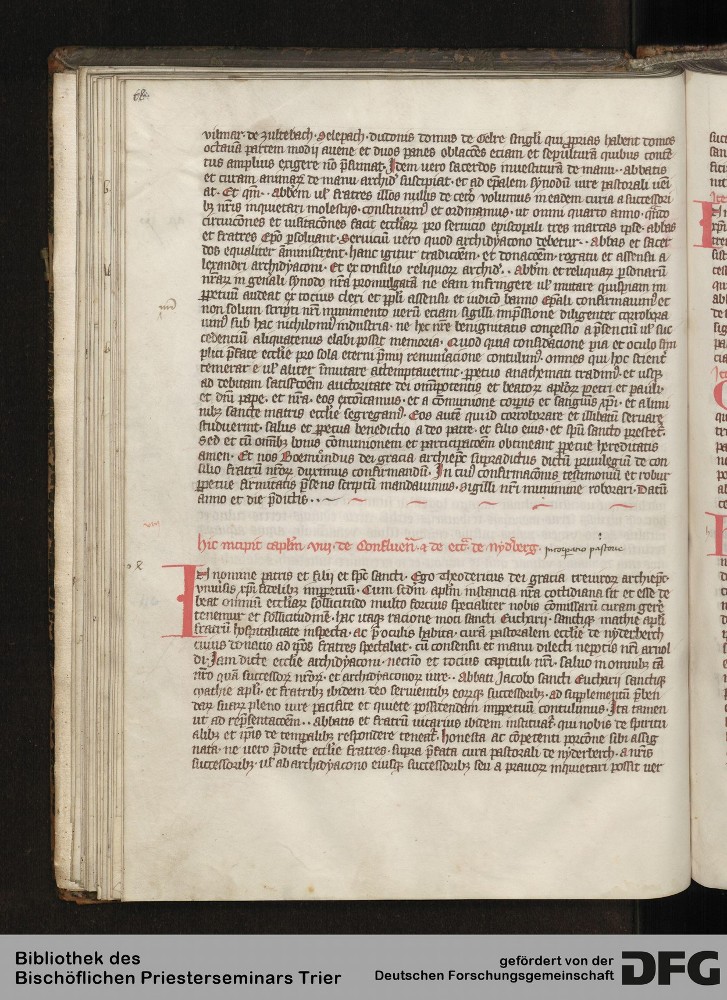 68.
vilmar. de zultebach. Selepach. dutonis domus de Celre singli qui proprias habent domos
octavā partem modii avene et duos panes oblacōes eciam et sepulturā quibus conte
tus amplius exigere nō psumat. Idem uero sacerdos inuestiturā de manu .. abbatis
et curam animarꝝ de manu archid suscipiat. et ad epalem synodū iure pastorali ueni
at. Et qm .. abbem ul fratres illos nullis de cetō volumus in eadem cura a successori
bꝫ nris inquietari molestijs. constituimꝰ et ordinamus. ut omni quarto anno. qndo
circuicōnes et uisitacōnes facit eccliarꝝ pro seruicio episcopali tres marcas ipse. abbas
et fratres Epō psoluant. Seruiciū uero quod archidyacono debetur .. abbas et sacer
dos equaliter aministrent. hanc igitur tradicōem. et donacōem. rogatu et assensu a
lexandri archidyaconi. Et ex consilio reliquorꝝ archid .. abbm et reliquarꝝ psonarū
nrarꝝ in genali synodo nra promulgatā ne eam infringere ul mutare quispiam im
ppetuū audeat ex tocius cleri et ppli assensu et iudicō banno Epali confirmauimꝰ et
non solum scripti nri munimento uerū eciam sigilli impssione diligenter corrobora
uimꝰ sub hac nichilominꝰ industria. ne hec nre benignitatis concessio a psenciū ul suc
cedenciū aliquatenus elabi possit memoria. Quod quia considacione pia et oculo sim
plici pfate ecclie pro sola eterni pmii renumeracione contulimꝰ. omnes qui hoc scient
temerare ul aliter imutare attemptauerint. ppetuo anathemati tradimꝰ. et usqꝫ
ad debitam satisfcōem auctoritate dei omipotentis et beatorꝝ aplorꝝ petri et pauli.
et dnī pape. et nra. eos excōicamus. et a cōmunione corpis et sangūis xpi. et a limi
nibꝫ sancte matris ecclie segregamꝰ. Eos autē qui id corroborare et illibatū seruare
studuerint. salus et ppetua benedictio a deo patre. et filio eius. et spū sancto prestet.
Sed et cū omibꝫ bonis cōmunionem et participacōem obtineant ppetue hereditatis
amen. Et nos Boemūndus dei gracia archiepc supradictus dictū priuilegiū de con
silio fratrū nrorꝝ duximus confirmandū. In cuiꝰ confirmacōnis testimoniū et robur
ppetue firmitatis psens scriptū mandauimus. sigilli nri munimine roborari. Datū
anno et die pdictis ..
viii
hic incipit caplm viij. de Confluen. et de ecca. de nyderberg. incorporacio pastorie
In nomine patris et filij et spc sancti. Ego Theodericus dei gracia treuirorꝝ archiepc
vniuūsis xpi fidelibꝫ imppetuū. Cum scdm aplm instancia nra cottidiana sit et esse de
beat omniū eccliarꝝ sollicitudo multo forcius specialiter nobis cōmissarū curam gere
tenemur et sollicitudinē. hac itaqꝫ racione moti sancti Eucharij. sanctiqꝫ mathie apli
fratrū hospitalitate inspecta. ac p oculis habita. curā pastoralem ecclie de nyderberch
cuius donacio ad ipōs fratres spectabat. cū consensu et manu dilecti nepotis nri arnol
di. Jam dicte ecclie archidyaconi. necnō et tocius capituli nri. saluo in omnibꝫ tā
nro quā successorꝝ nrorꝝ. et archidyaconorꝝ iure .. Abbati Jacobo sancti Eucharij sanctiqꝫ
mathie apli. et fratribꝫ ibidem deo seruientibꝫ eorqꝫ successoribꝫ. ad supplementū pben
darꝝ suarꝝ pleno iure pacifice et quiete possidendam imppetuū contulimus. Ita tamen
ut ad repsentacōem .. abbatis et fratrū uicarius ibidem instituat. qui nobis de spiritu
alibꝫ et ipīs de temꝑalibꝫ respondere teneat. honesta ac cōpetenti porcōne sibi assig
nata. ne uero pdicte ecclie fratres. supra pfata cura pastorali de nyderberch. a nris
successoribꝫ. ul ab archidyacono eiusqꝫ successoribꝫ seu a prauorꝝ inquietari possit uer
Bibliothek des
Bischöflichen Priesterseminars Trier
gefördert von der
Deutschen Forschungsgemeinschaft
DFG